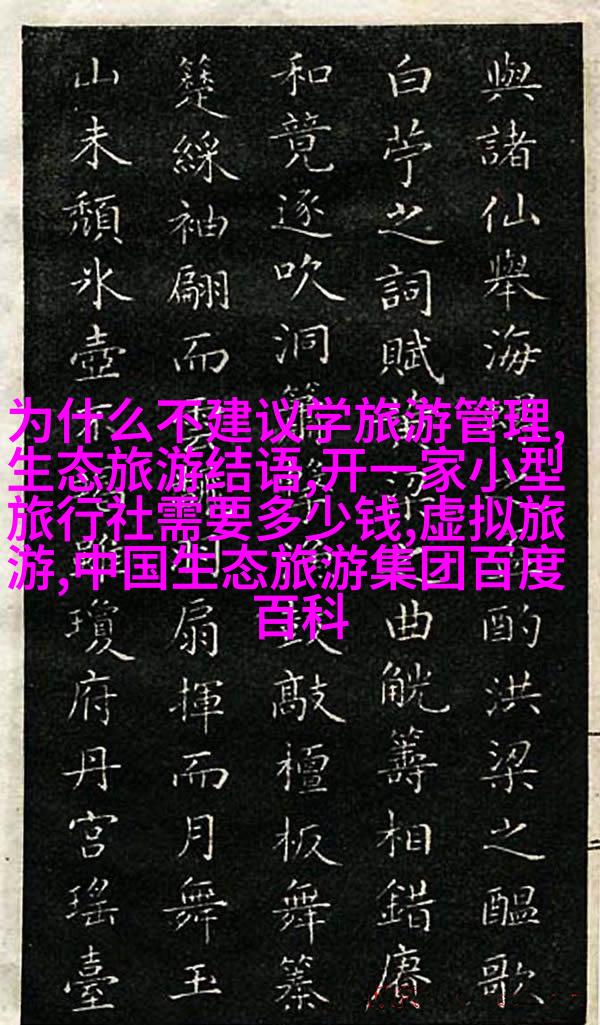 與諸仙舉海酌洪梁之醞歌
白苧之詞賦之曲觥籌相錯賡
和竟逐吹洞簫鼓敲檀板舞
綵袖翩而雲羽扇揮而月舞玉
山未頹冰壺不竭雖瓊府丹宮瑤臺
为什么不建议学旅游管理,
生态旅游结语,开一家小型
旅行社需要多少钱,虚拟旅
游,中国生态旅游集团百度
百科